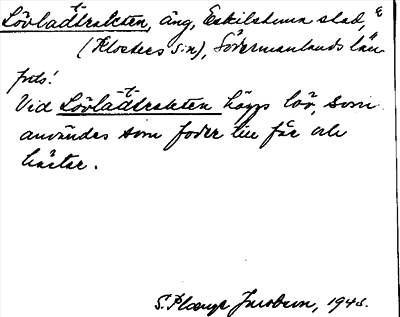 Lövladtrakten, äng, Eskilstuna stad,
(Klosters s:n), Södermanlands län
Vid Lövladtrakten höggs löv, som
användes som foder till får och
hästar.
S. Jacobson, 1945.